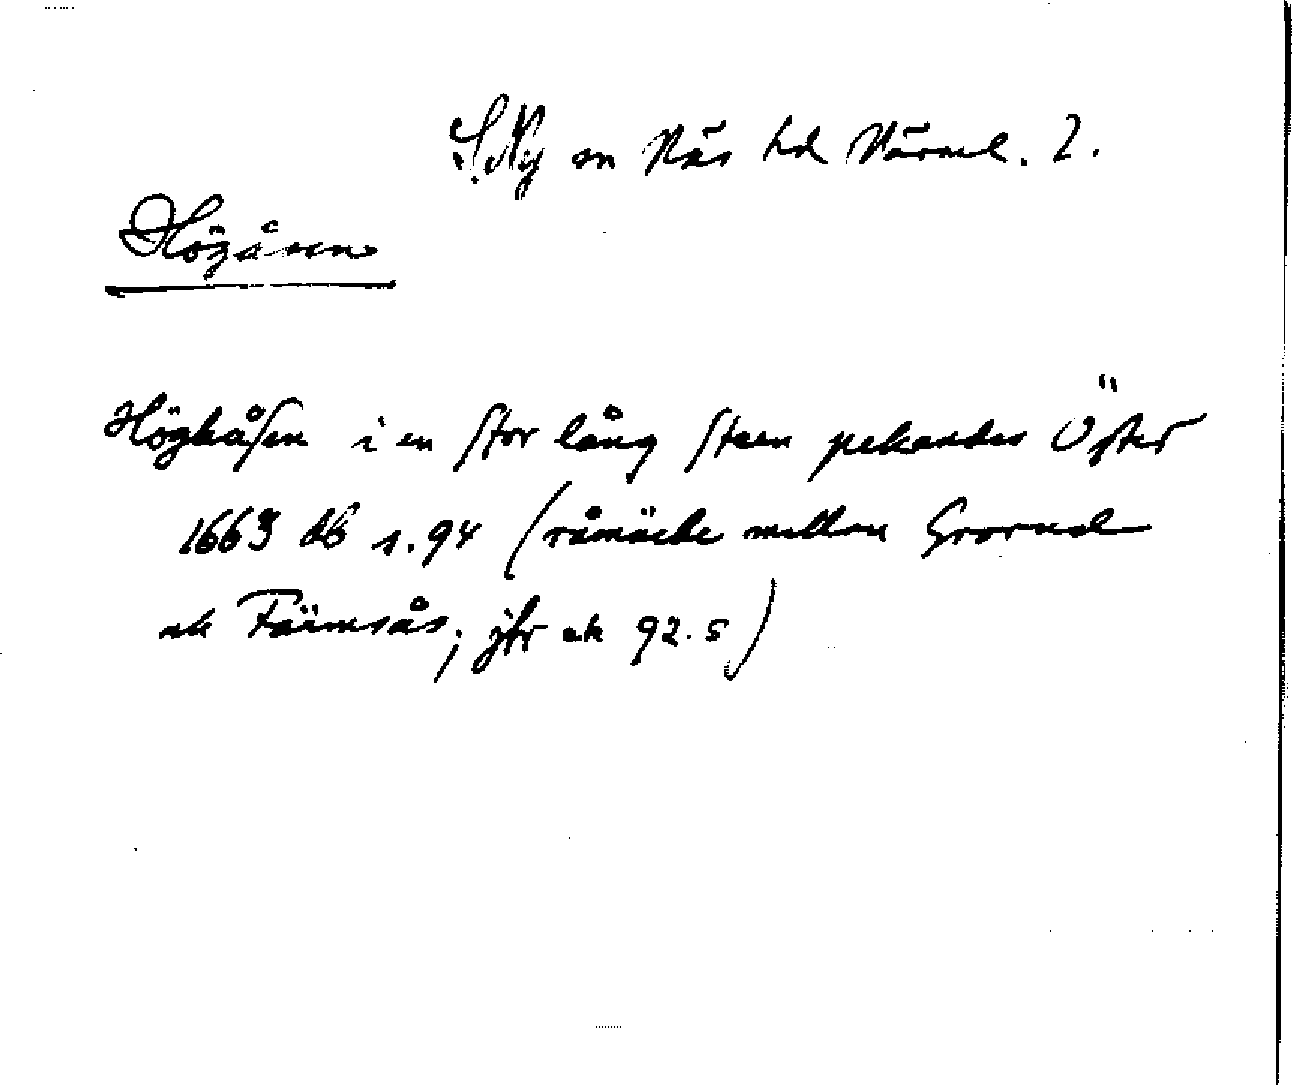 S. Ny sn Näs hd Värml. l.
Högåsen
Höghåsen i en stor lång steen pekandes Öster
1663 db s. 94 (råmärke mellan Grorud
ok Färmsås; jfr ok 92. s)